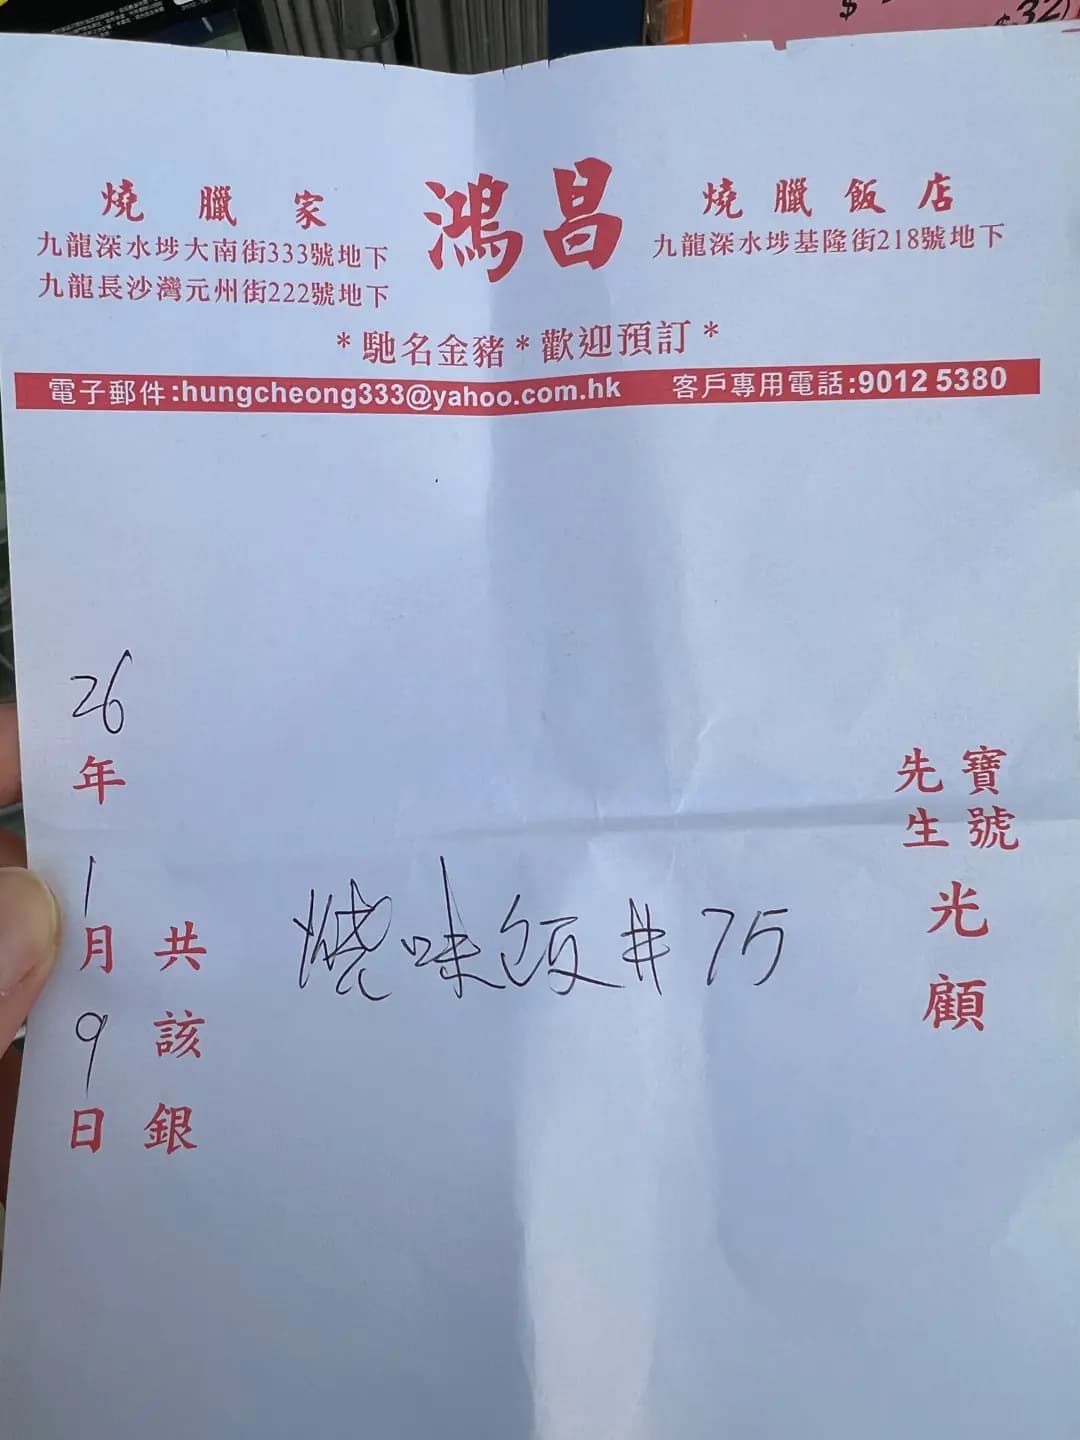 $
$32
燒臘家
鴻昌
燒臘飯店
九龍深水埗大南街333號地下
九龍長沙灣元州街222號地下
九龍深水埗基隆街218號地下
*馳名金豬*歡迎預訂*
電子郵件:hungcheong333@yahoo.com.hk 客戶專用電話:9012 5380
寶號
先生
光顧
燒味飯#75
共該銀
26年1月9日